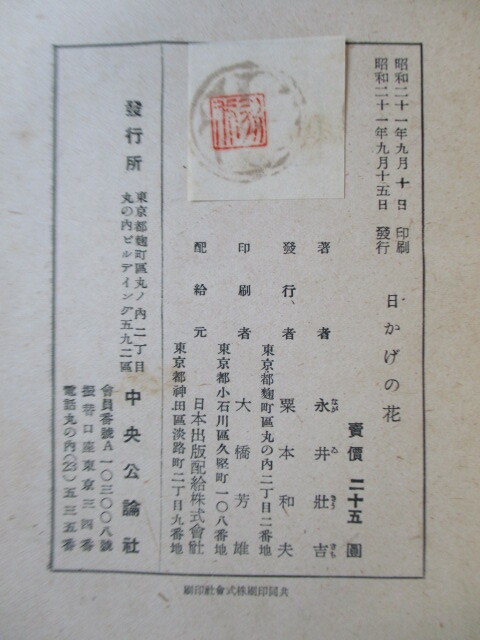 昭和二十一年九月十日 印刷
昭和二十一年九月十五日 發行
日かげの花
賣價 二十五圓
著者 永井壯吉
發行者 栗本和夫
東京都麴町區丸の內二丁目二番地
印刷者 大橋芳雄
東京都小石川區久堅町一〇八番地
配給元 日本出版配給株式會社
東京都神田區淡路町二丁目九番地
發行所
東京都麴町區丸ノ內二丁目
丸の內ビルデイング五九二區
中央公論社
會員番號A一〇三〇〇八號
振替口座東京三四番
電話丸の內(23)五三五番
共同印刷株式會社印刷